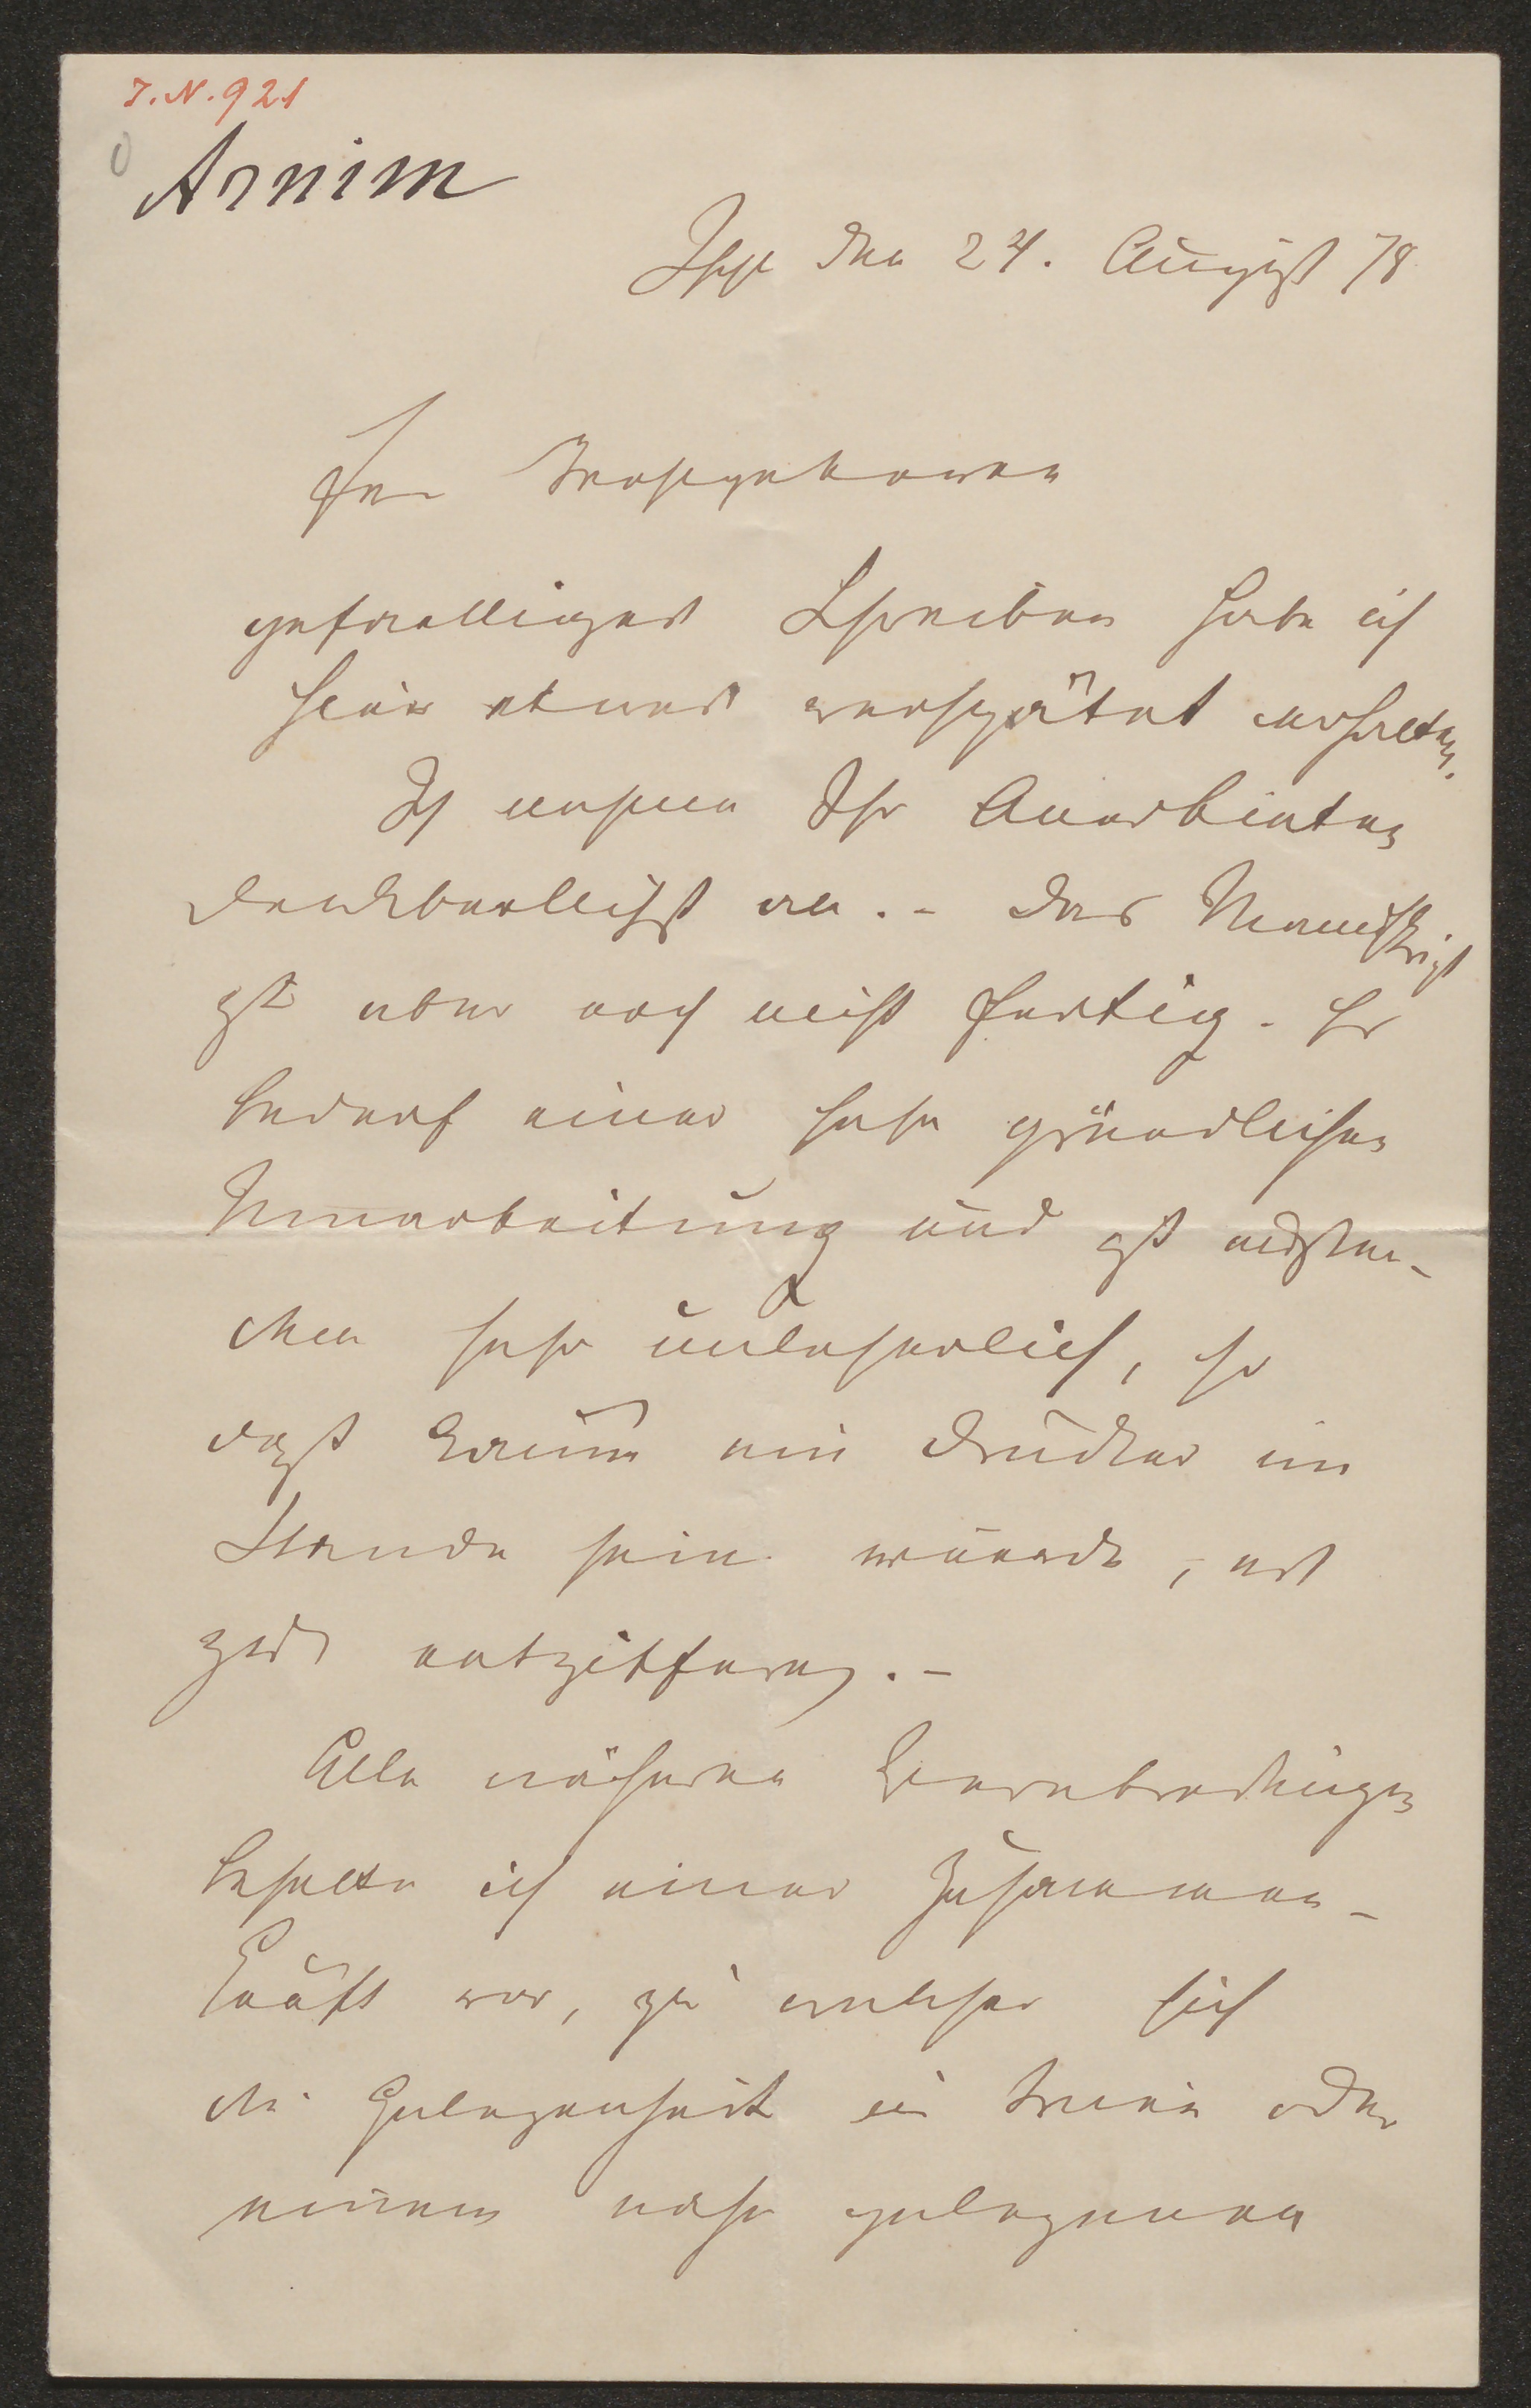 I.N. 921
Arnim
Ischl den 24. August 78
Euer Wohlgeboren
gefaelliges Schreiben habe ich
hier etwas verspätet erhalten.
Ich nehme Ihr Anerbieten
dankbarlichst an. - Das Manuskript
ist aber noch nicht fertig. Es
bedarf einer sehr gründlichen
Umarbeitung und ist außer-
dem sehr unleserlich, so
daß kaum ein Drucker im
Stande sein wuerde, es
zu entziffern. -
Alle näheren Verabredungen
behalte ich einer Zusammen-
kunft vor, zu welcher sich
die Gelegenheit in Wien oder
einem nahe gelegenen